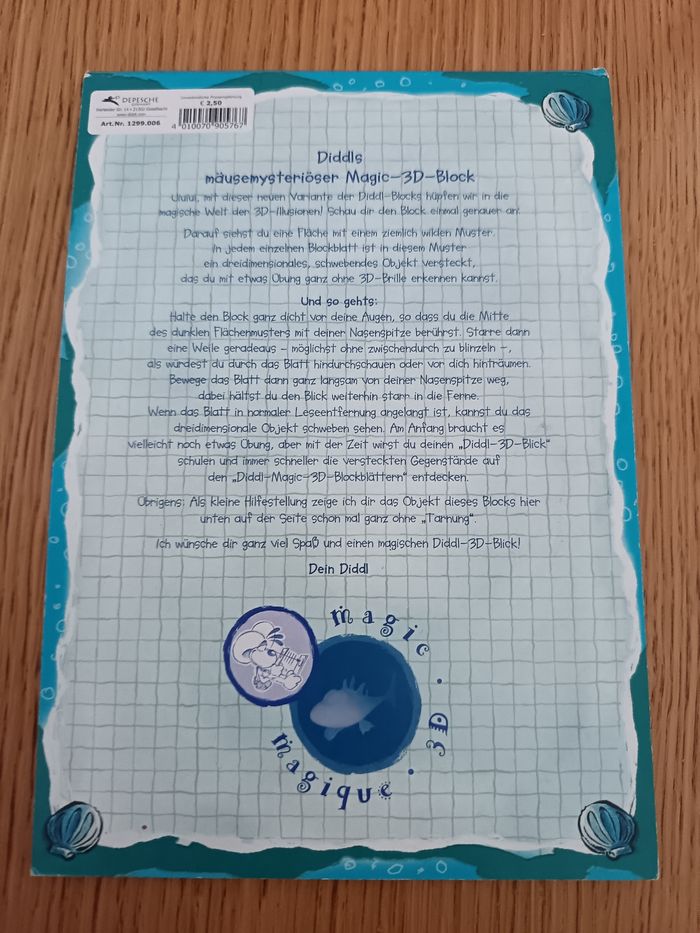 DEPESCHE
www.diddl.com
Art.Nr. 1299.006
Unverbindliche Preisempfehlung
€ 2,50
4 010070 905767
Diddls
mäusemysteriöser Magic-3D-Block
Uiuiui, mit dieser neuen Variante der Diddl-Blocks hüpfen wir in die
magische Welt der 3D-Illusionen! Schau dir den Block einmal genauer an!
Darauf siehst du eine Fläche mit einem ziemlich wilden Muster.
In jedem einzelnen Blockblatt ist in diesem Muster
ein dreidimensionales, schwebendes Objekt versteckt,
das du mit etwas Übung ganz ohne 3D-Brille erkennen kannst.
Und so gehts:
Halte den Block ganz dicht vor deine Augen, so dass du die Mitte
des dunklen Flächenmusters mit deiner Nasenspitze berührst. Starre dann
eine Weile geradeaus – möglichst ohne zwischendurch zu blinzeln –,
als würdest du durch das Blatt hindurchschauen oder vor dich hinträumen.
Bewege das Blatt dann ganz langsam von deiner Nasenspitze weg,
dabei hältst du den Blick weiterhin starr in die Ferne.
Wenn das Blatt in normaler Leseentfernung angelangt ist, kannst du das
dreidimensionale Objekt schweben sehen. Am Anfang braucht es
vielleicht noch etwas Übung, aber mit der Zeit wirst du deinen „Diddl-3D-Blick“
schulen und immer schneller die versteckten Gegenstände auf
den „Diddl-Magic-3D-Blockblättern“ entdecken.
Übrigens: Als kleine Hilfestellung zeige ich dir das Objekt dieses Blocks hier
unten auf der Seite schon mal ganz ohne „Tarnung“.
Ich wünsche dir ganz viel Spaß und einen magischen Diddl-3D-Blick!
Dein Diddl
magic · 3D · magique